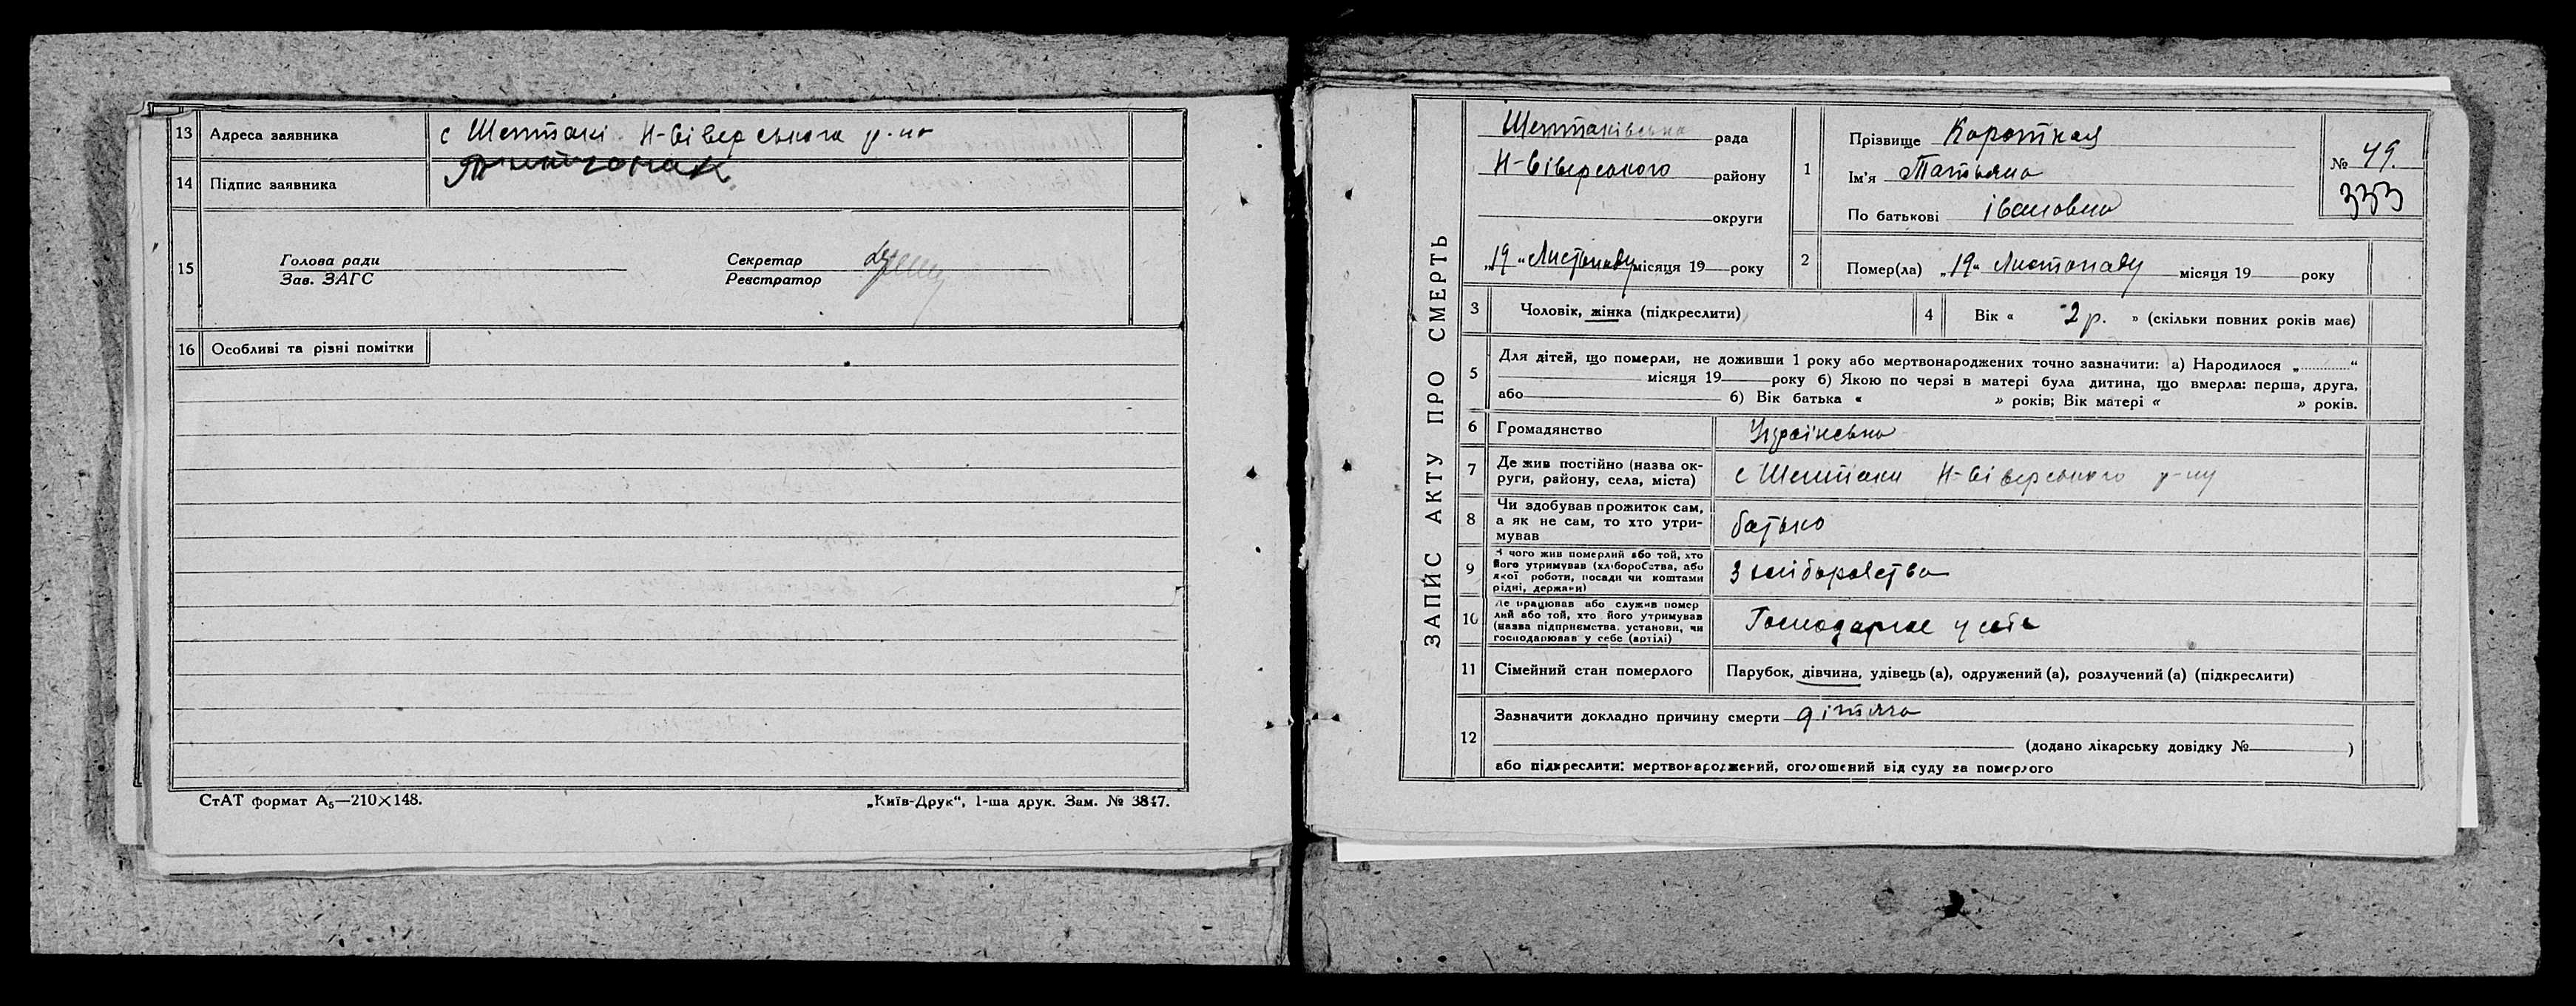 13 Адреса заявника с Шептакі Н-Сіверського р-на
14 Підпис заявника
15 Голова ради Секретар
Зав. ЗАГС Реєстратор
16 Особливі та різні помітки
СтАТ формат А5—210×148. „Київ-Друк“, 1-ша друк. Зам. № 3847.
ЗАПИС АКТУ ПРО СМЕРТЬ
Шептаківська рада
Н-Сіверського району
округи
„19“ Листопаду місяця 19 року
1 Прізвище Короткая
Ім'я Татьяна
По батькові івановна
№ 49.
333
2 Помер(ла) „19“ Листопаду місяця 19 року
3 Чоловік, жінка (підкреслити)
4 Вік « 2 р. » (скільки повних років має)
5 Для дітей, що померли, не доживши 1 року або мертвонароджених точно зазначити: а) Народилося „ “
місяця 19 року б) Якою по черзі в матері була дитина, що вмерла: перша, друга,
або б) Вік батька « » років; Вік матері « » років.
6 Громадянство Українська
7 Де жив постійно (назва ок-
руги, району, села, міста) с Шептаки Н-Сіверського р-ну
8 Чи здобував прожиток сам,
а як не сам, то хто утри-
мував батько
9 З чого жив померлий або той, хто
його утримував (хліборобства, або
якої роботи, посади чи коштами
рідні, держави) З хліборобства
10 Де працював або служив помер
лий або той, хто його утримував
(назва підприємства, установи, чи
господарював у себе (артілі) Господарює у себе
11 Сімейний стан померлого Парубок, дівчина, удівець (а), одружений (а), розлучений (а) (підкреслити)
12 Зазначити докладно причину смерти дітяча
(додано лікарську довідку № )
або підкреслити: мертвонароджений, оголошений від суду за померлого